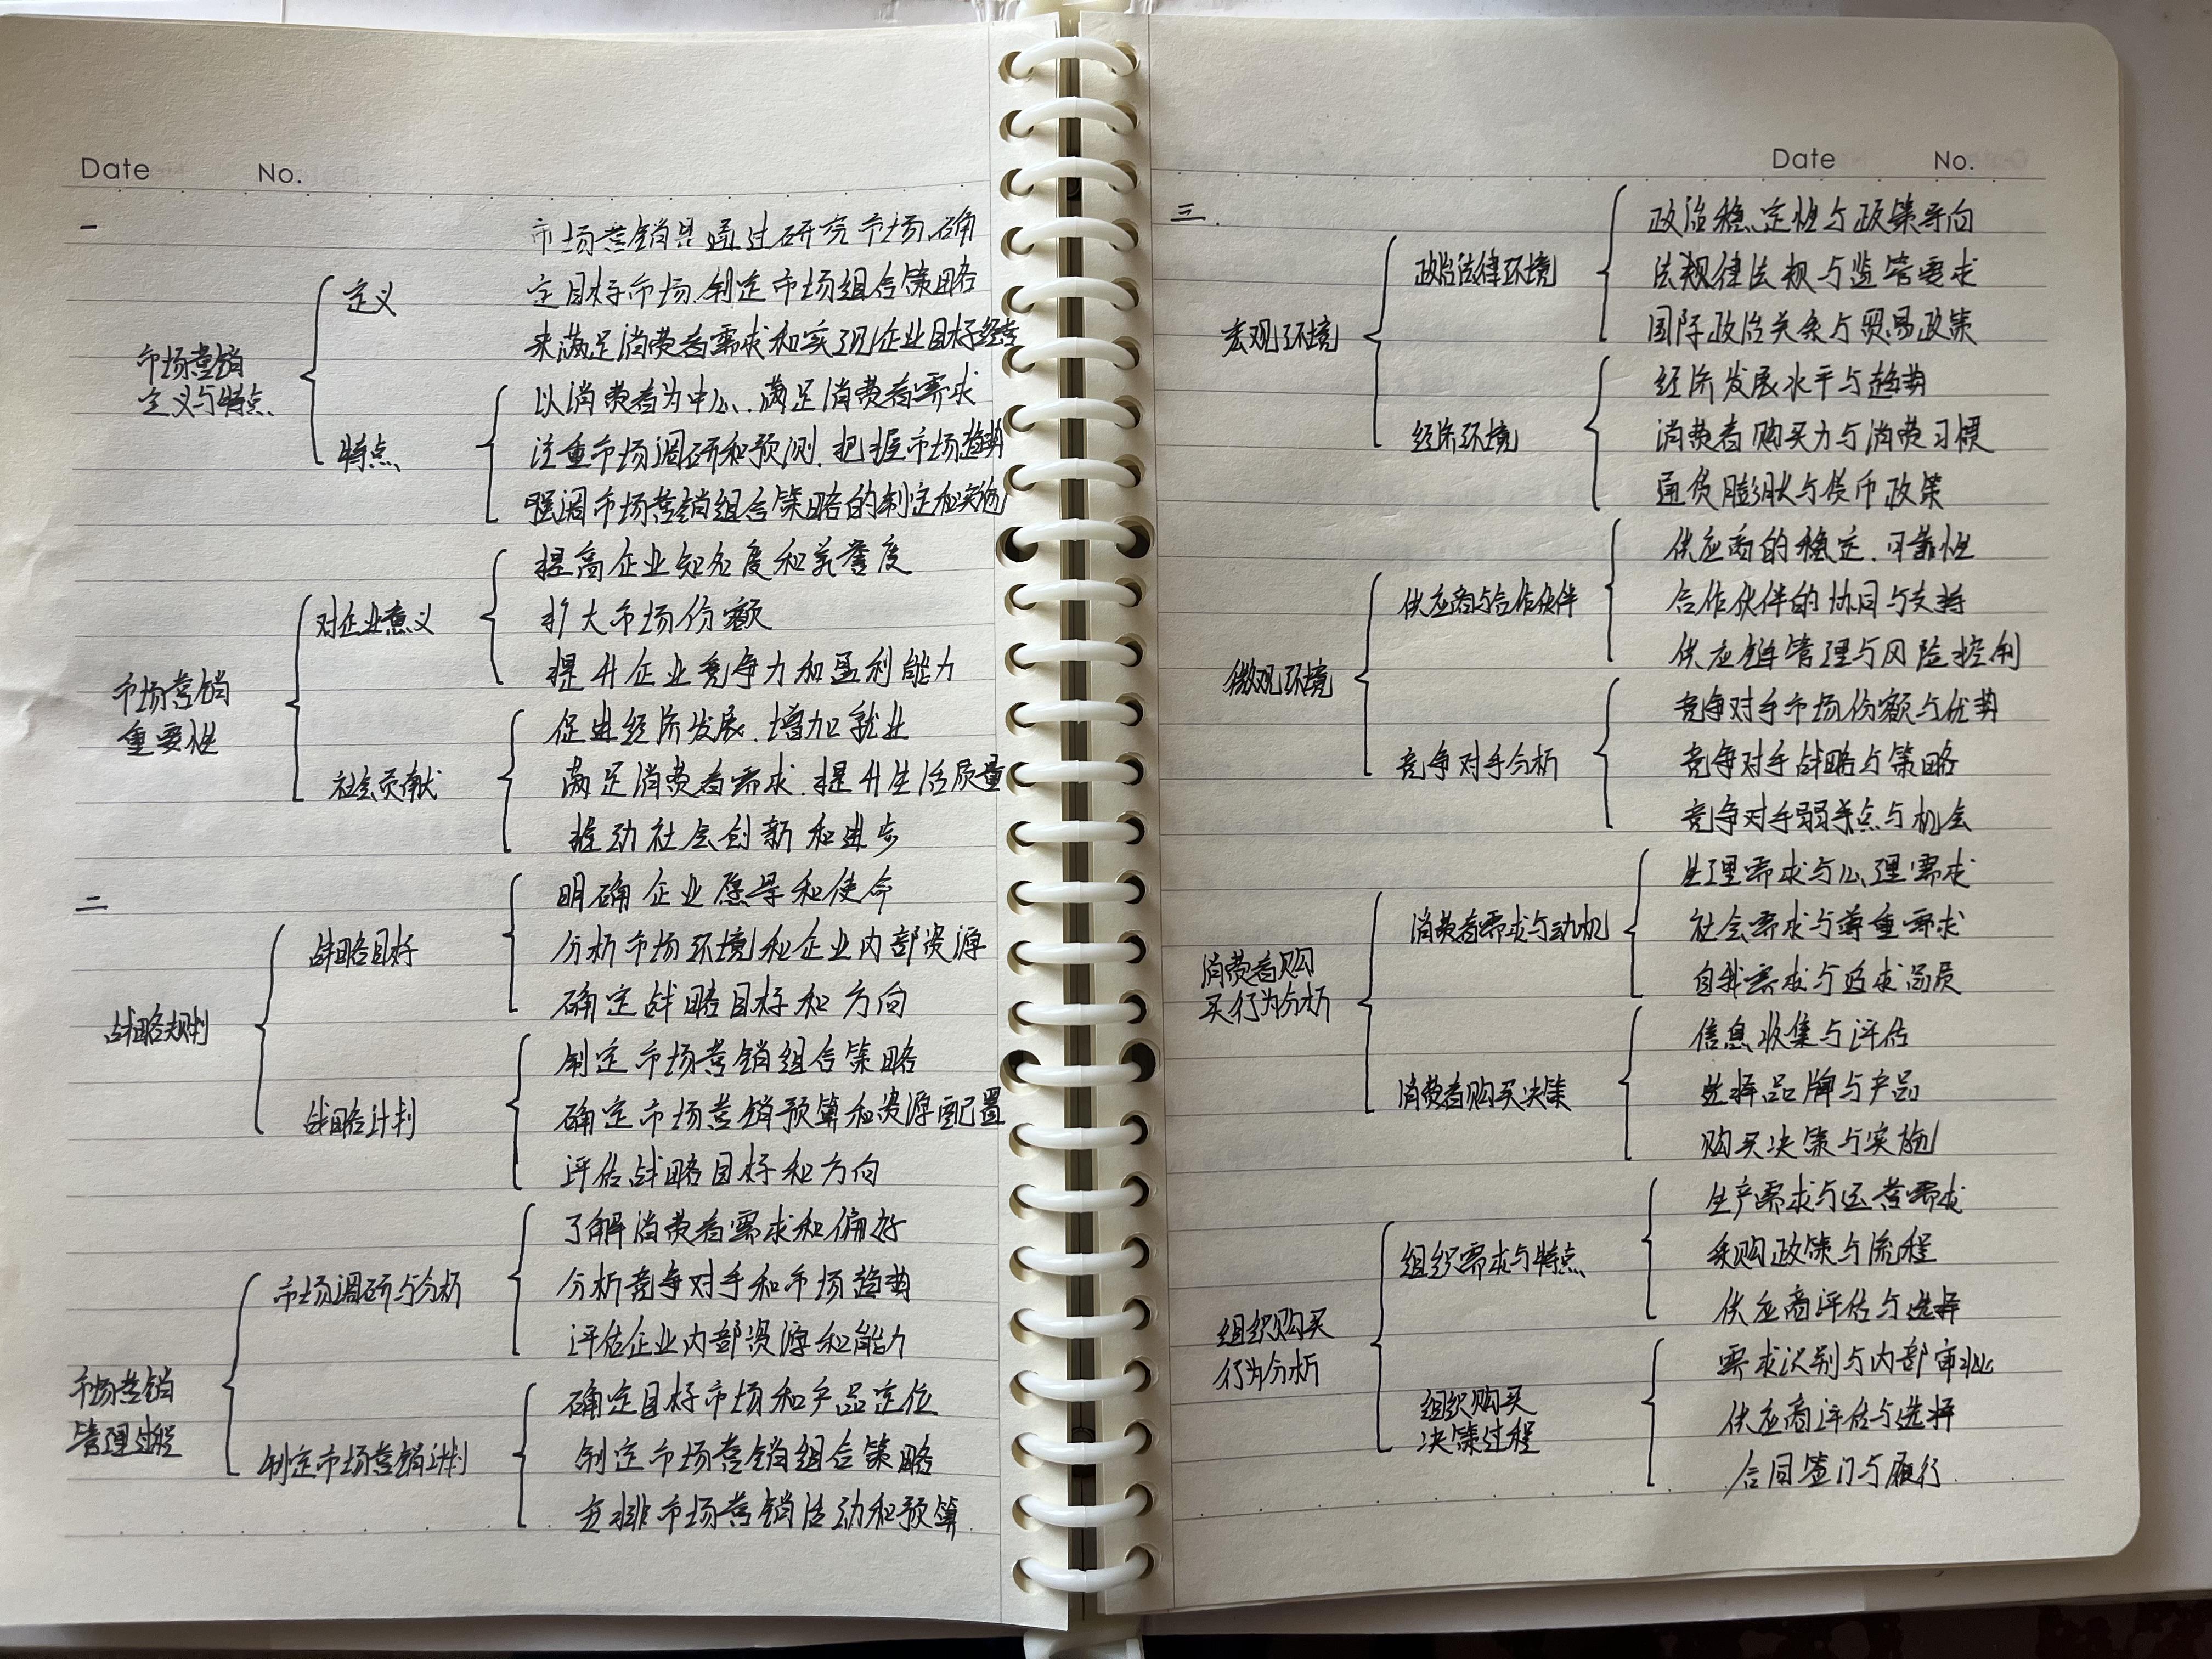 Date No.
一
市场营销
定义与特点
定义
市场营销是通过研究市场,确
定目标市场,制定市场组合策略
来满足消费者需求和实现企业目标经营
特点
以消费者为中心、满足消费者需求
注重市场调研和预测.把握市场趋势
强调市场营销组合策略的制定和实施
市场营销
重要性
对企业意义
提高企业知名度和美誉度
扩大市场份额
提升企业竞争力和盈利能力
社会贡献
促进经济发展.增加就业
满足消费者需求.提升生活质量
推动社会创新和进步
二
战略规划
战略目标
明确企业愿景和使命
分析市场环境和企业内部资源
确定战略目标和方向
战略计划
制定市场营销组合策略
确定市场营销预算和资源配置
评估战略目标和方向
市场营销
管理过程
市场调研与分析
了解消费者需求和偏好
分析竞争对手和市场趋势
评估企业内部资源和能力
制定市场营销计划
确定目标市场和产品定位
制定市场营销组合策略
安排市场营销活动和预算
Date No.
三.
宏观环境
政治法律环境
政治稳定性与政策导向
法规律法规与监管要求
国际政治关系与贸易政策
经济环境
经济发展水平与趋势
消费者购买力与消费习惯
通货膨胀与货币政策
微观环境
供应商与合作伙伴
供应商的稳定.可靠性
合作伙伴的协同与支持
供应链管理与风险控制
竞争对手分析
竞争对手市场份额与优势
竞争对手战略与策略
竞争对手弱关点与机会
消费者购
买行为分析
消费者需求与动机
生理需求与心理需求
社会需求与尊重需求
自我需求与追求品质
消费者购买决策
信息收集与评估
选择品牌与产品
购买决策与实施
组织购买
行为分析
组织需求与特点
生产需求与运营需求
采购政策与流程
供应商评估与选择
组织购买
决策过程
需求识别与内部审批
供应商评估与选择
合同签订与履行